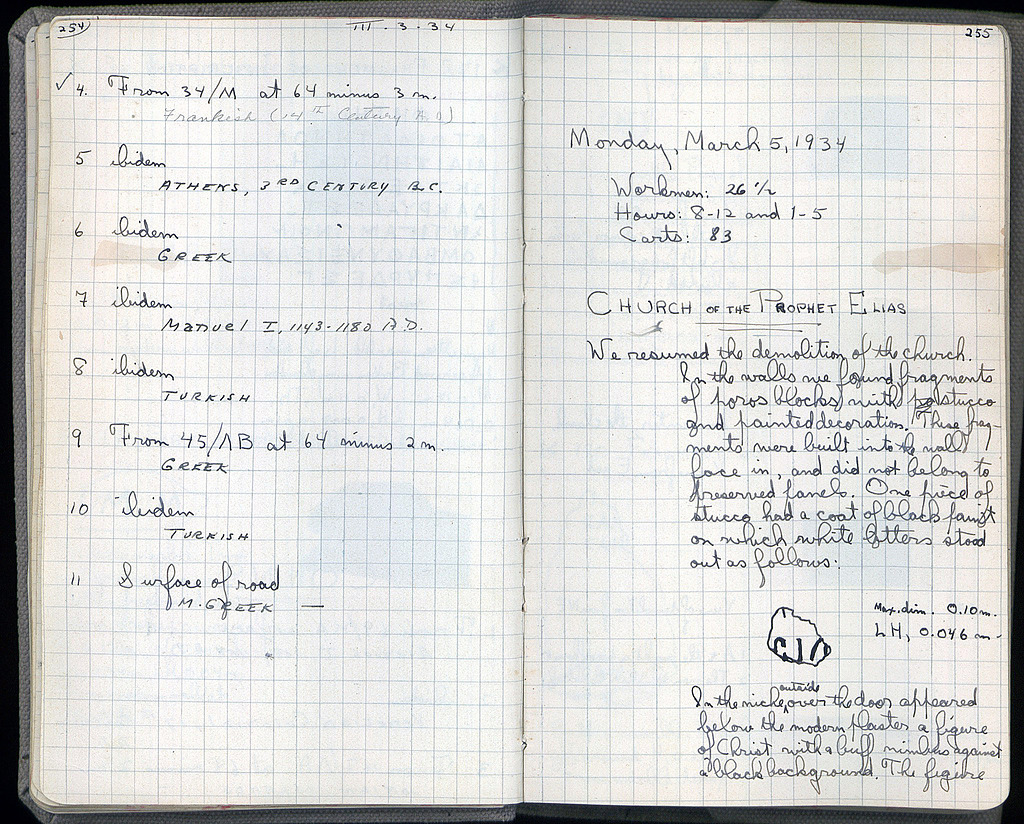 254
III . 3 . 34
✓ 4. From 34/M at 64 minus 3 m.
Frankish (14th Century A.D)
5 ibidem
ATHENS, 3RD CENTURY B.C.
6 ibidem
GREEK
7 ibidem
Manuel I, 1143-1180 A.D.
8 ibidem
TURKISH
9 From 45/ΛB at 64 minus 2 m.
GREEK
10 ibidem
TURKISH
11 Surface of road
M. GREEK —
255
Monday, March 5, 1934
Workmen: 26 1/2
Hours: 8-12 and 1-5
Carts: 83
CHURCH OF THE PROPHET ELIAS
We resumed the demolition of the church.
In the walls we found fragments
of poros blocks with stucco
and painted decoration. These frag-
ments were built into the wall
face in, and did not belong to
preserved panels. One piece of
stucco had a coat of black paint
on which white letters stood
out as follows:
Max. dim. 0.10 m.
LH, 0.046 m -
outside
In the niche over the door appeared
below the modern plaster a figure
of Christ with a buff nimbus against
a black background. The figure